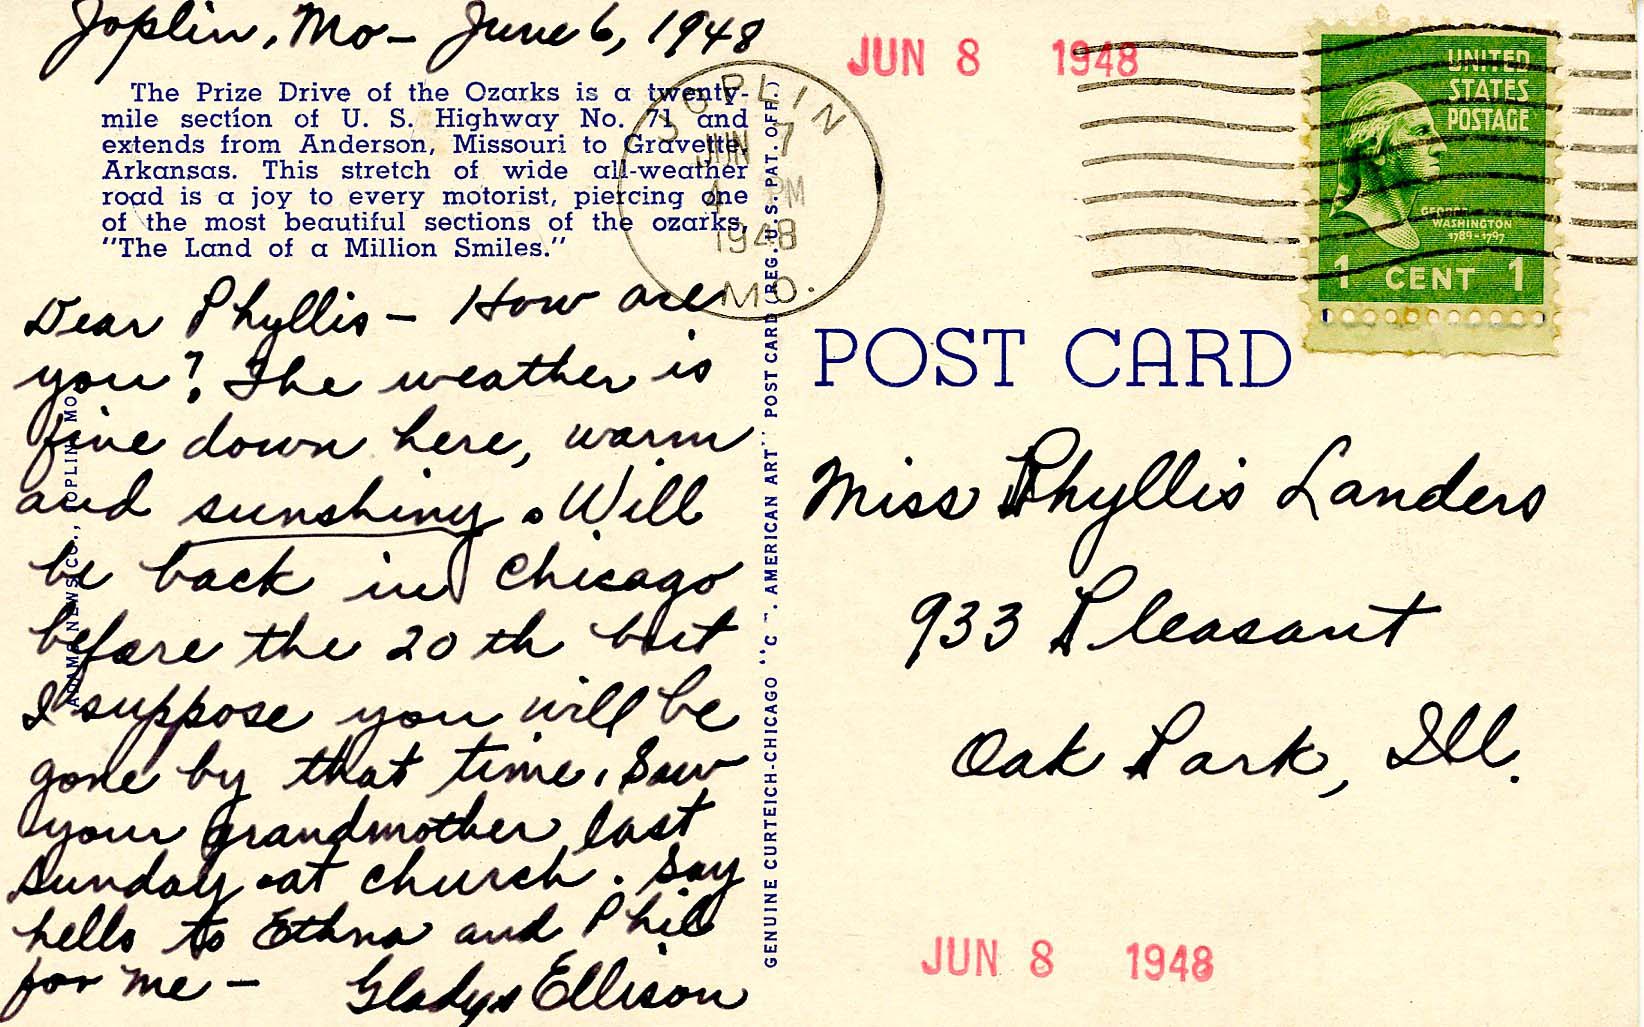 Joplin, Mo – June 6, 1948
The Prize Drive of the Ozarks is a twenty-
mile section of U. S. Highway No. 71 and
extends from Anderson, Missouri to Gravette,
Arkansas. This stretch of wide all-weather
road is a joy to every motorist, piercing one
of the most beautiful sections of the ozarks,
"The Land of a Million Smiles."
Dear Phyllis – How are
you? The weather is
fine down here, warm
and sunshiny. Will
be back in Chicago
before the 20th but
I suppose you will be
gone by that time. Saw
your grandmother last
Sunday at church. Say
hello to Ethna and Phil
for me –
Gladys Ellison
ADAMS NEWS CO., JOPLIN, MO.
GENUINE CURTEICH-CHICAGO "C. T. AMERICAN ART" POST CARD (REG. U.S. PAT. OFF.)
JOPLIN
JUN 7
4 PM
1948
MO.
JUN 8 1948
UNITED
STATES
POSTAGE
GEORGE
WASHINGTON
1789-1797
1 CENT 1
POST CARD
Miss Phyllis Landers
933 Pleasant
Oak Park, Ill.
JUN 8 1948